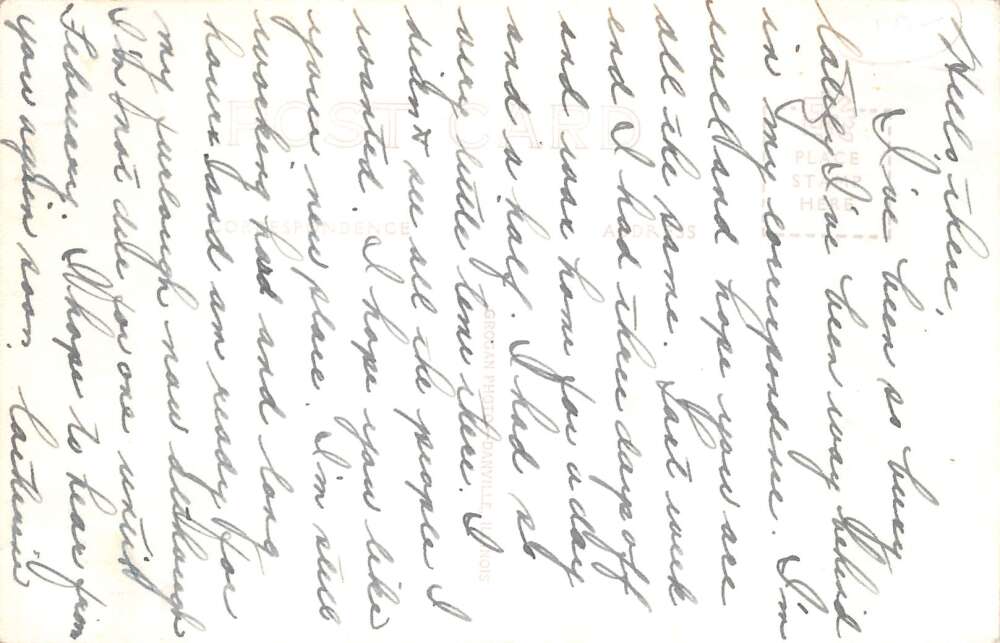 Hello there,
I've been so busy
lately I've been way behind
in my correspondence. I'm
well and hope you are
all the same. Last week
end I had three days off
and was home for a day
and a half. I had so
very little time there. I
didn't see all the people I
wanted. I hope you like
your new place. I'm still
working hard and long
hours and am ready for
my furlough now although
I'm not due for one until
February. I hope to hear from
you again soon.
POST CARD
CORRESPONDENCE
ADDRESS
PLACE
STAMP
HERE
GROGAN PHOTO, DANVILLE, ILLINOIS